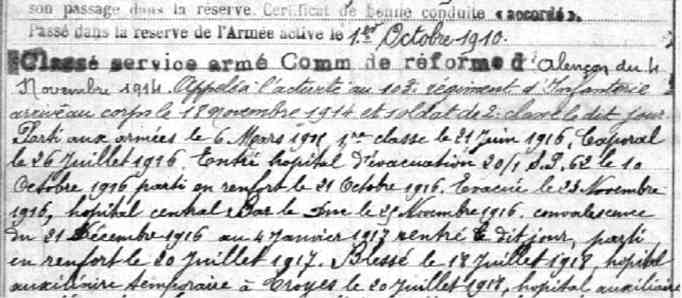 son passage dans la réserve. Certificat de bonne conduite « accordé ».
Passé dans la réserve de l'Armée active le 1er Octobre 1910.
Classé service armé Comm de réforme d'Alençon du 4
Novembre 1914. Appelé à l'activité au 102e régiment d'Infanterie
arrivé au corps le 18 novembre 1914 et soldat de 2e classe le dit jour
Parti aux armées le 6 Mars 1915 1re classe le 21 Juin 1916, Caporal
le 26 Juillet 1916. Entré hopital d'évacuation 20/1 S.P. 62 le 10
Octobre 1916 parti en renfort le 21 Octobre 1916. Evacué le 23 Novembre
1916, hopital central Bar le Duc le 25 Novembre 1916. convalescence
du 21 Décembre 1916 au 4 Janvier 1917 rentré le dit jour, parti
en renfort le 20 Juillet 1917. Blessé le 18 Juillet 1918, hopital
auxiliaire temporaire à Troyes le 20 Juillet 1918, hopital auxiliaire